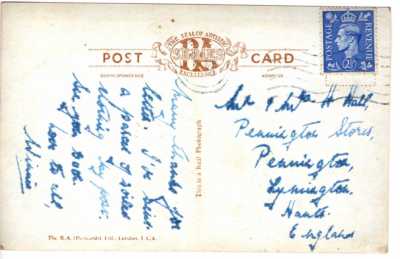 THE SEAL OF ARTISTIC
POST CARD
SERIES
EXCELLENCE
CORRESPONDENCE
ADDRESS
POSTAGE
REVENUE
2½D
Many thanks for
letter. I've sent
a parcel of soiled
clothing by post.
See you soon
love to all
Winnie
This is a Real Photograph
Mr & Mrs H Hall,
Pennington Stores,
Pennington,
Lymington,
Hants.
England
The R.A. (Postcards), Ltd., London, E.C.4.